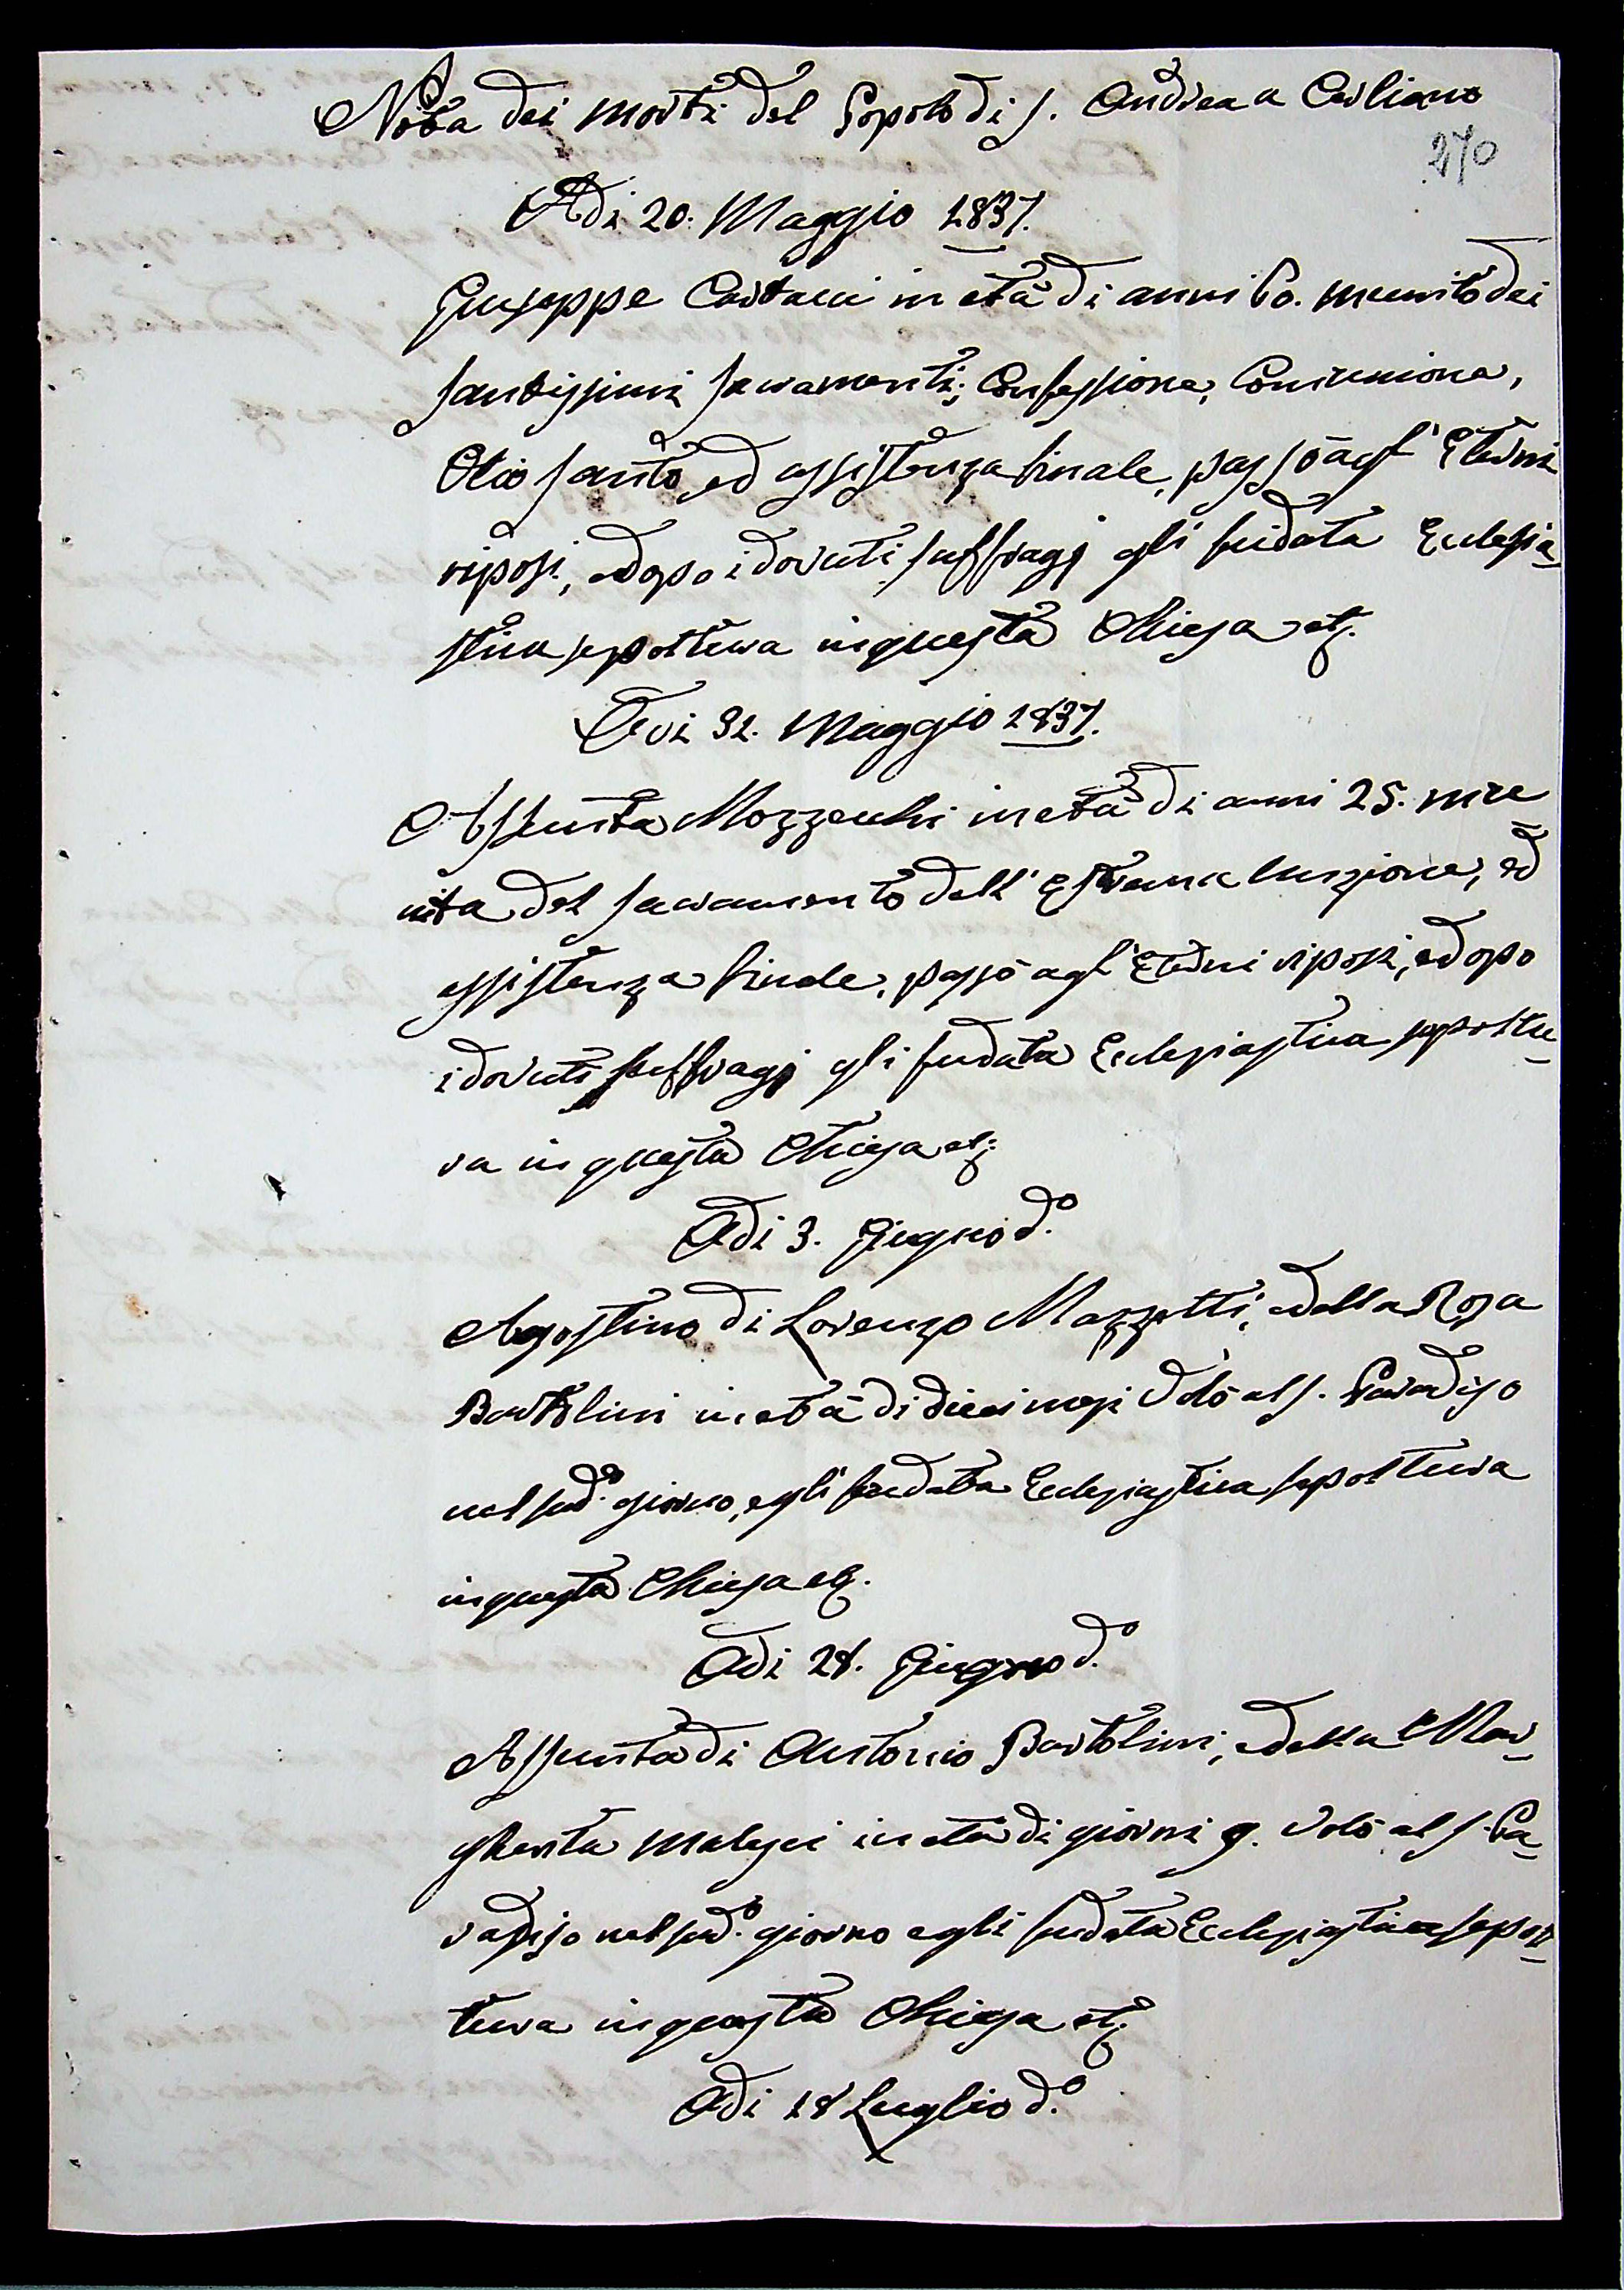 Nota dei morti del Popolo di S. Andrea a Cerliano
270
Adi 20. Maggio 1837.
Giuseppe Cartacci in età di anni 60. munito dei
Santissimi Sacramenti; Confessione, Comunione,
Olio santo, ed assistenza finale, passò agl' Eterni
riposi, e dopo i dovuti suffragj gli fu data Eclesia=
stica sepoltura in questa Chiesa etc.
Adi 31. Maggio 1837.
Assunta Mozzecchi in età di anni 25. mu=
nita del sacramento dell' Estrema Unzione, ed
assistenza finale, passò agl' Eterni riposi, e dopo
i dovuti suffragj gli fu data Eclesiastica sepoltu=
ra in questa Chiesa etc.
Adi 3. Giugno d.o
Agostino di Lorenzo Mazzetti, e della Rosa
Bartolini in età di dieci mesi volò al S. Paradiso
nel sud.o giorno, e gli fu data Eclesiastica sepoltura
in questa Chiesa etc.
Adi 28. Giugno d.o
Assunta di Antonio Bartolini, e della Mar=
gherita Malesci in età di giorni 9. volò al S. Pa=
radiso nel sud.o giorno e gli fu data Eclesiastica sepol=
tura in questa Chiesa etc.
Adi 18 Luglio d.o